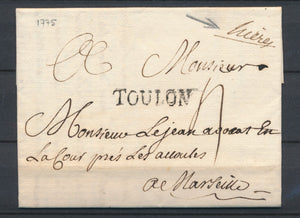 1775
hieres
Monsieur
TOULON
4
Monsieur Lejean avocat En
La Cour prés Les accoules
a Marseille